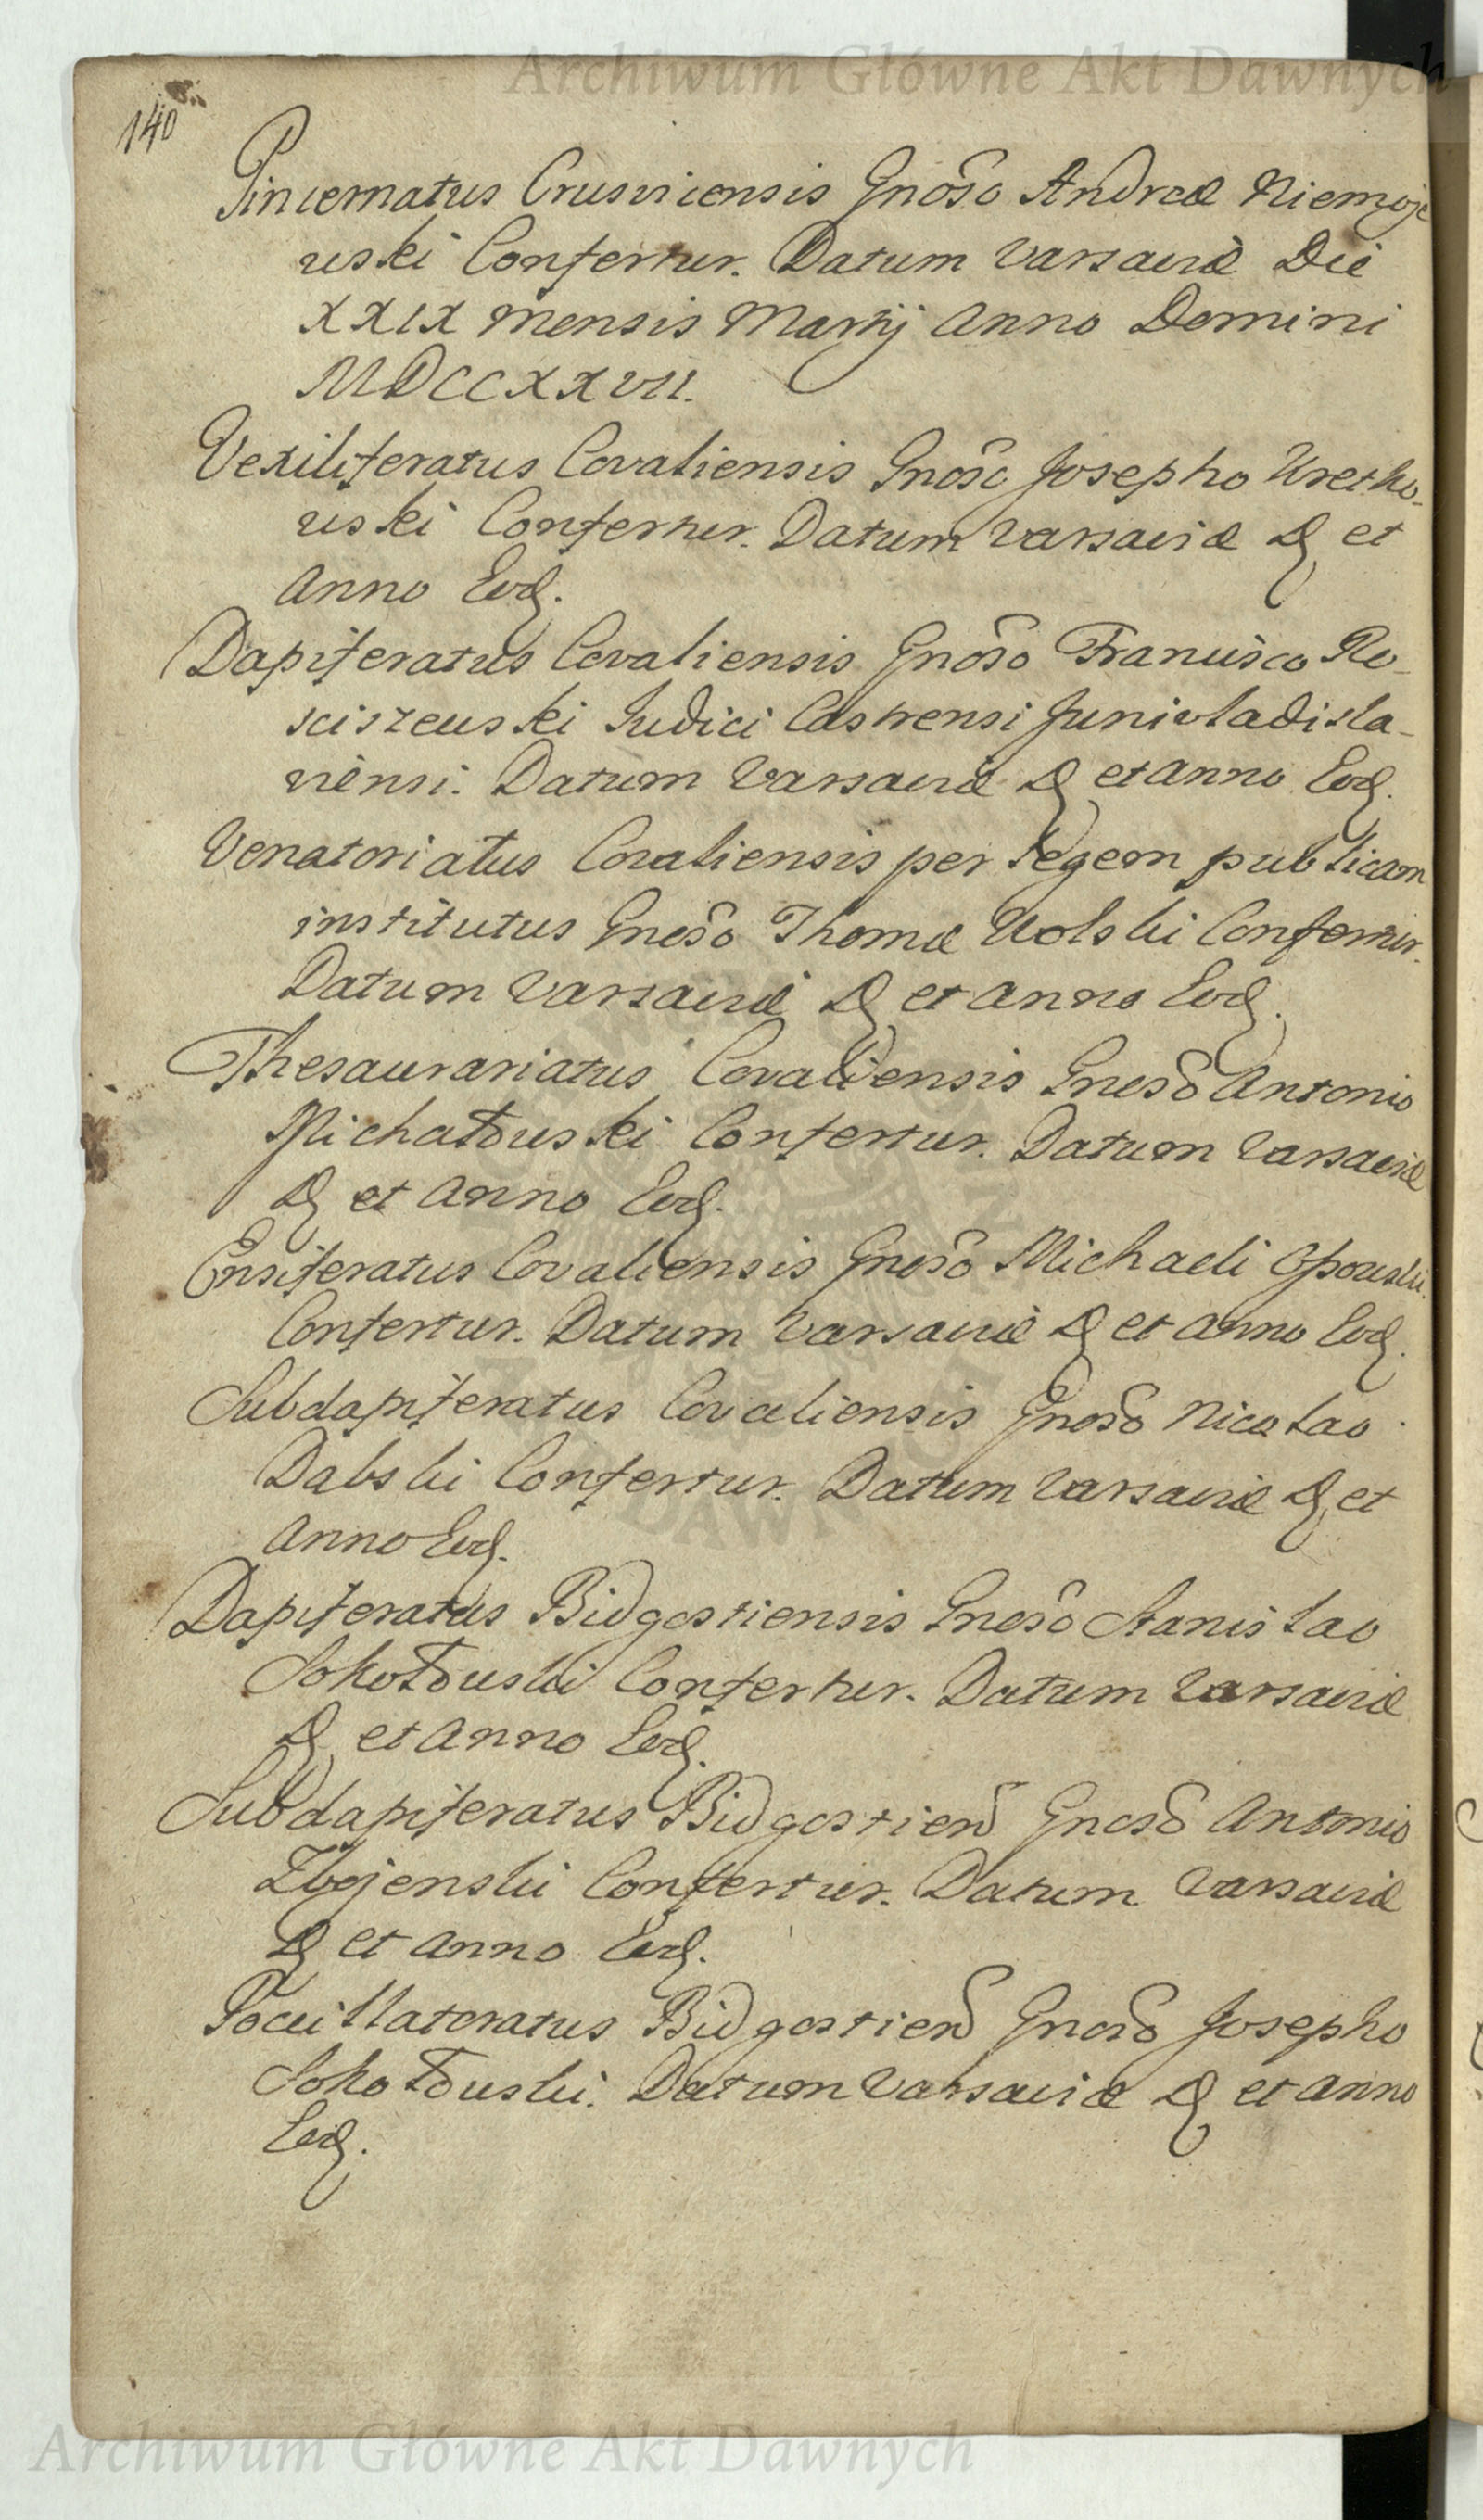 Archiwum Główne Akt Dawnych
140
Pincernatus Crusviciensis Gnoso Andreæ Niemoje
wski Confertur. Datum Varsaviæ Die
XXIX mensis Martij Anno Domini
MDCCXXVII.
Vexiliferatus Covaliensis Gnoso Josepho
wski Confertur. Datum Varsaviæ D. et
Anno Eod.
Dapiferatus Covaliensis Gnoso Francisco Ro-
sciszewski Judici Castrensi Junivladisla-
viensi. Datum Varsaviæ D. et Anno Eod.
Venatoriatus Covaliensis per legem publicam
institutus Gnoso Thomæ Wolski Confertur.
Datum Varsaviæ D. et Anno Eod.
Thesaurariatus Covaliensis Gnoso Antonio
Michałowski Confertur. Datum Varsaviæ
D. et Anno Eod.
Ensiferatus Covaliensis Gnoso Michaeli
Confertur. Datum Varsaviæ D. et Anno Eod.
Subdapiferatus Covaliensis Gnoso Nicolao
Dabski Confertur. Datum Varsaviæ D. et
Anno Eod.
Dapiferatus Bidgostiensis Gnoso Stanislao
Sokołowski Confertur. Datum Varsaviæ
D. et Anno Eod.
Subdapiferatus Bidgostien Gnoso Antonio
Zbojenski Confertur. Datum Varsaviæ
D. et Anno Eod.
Pocillatoratus Bidgostien Gnoso Josepho
Sokołowski. Datum Varsaviæ D. et Anno
Eod.
Archiwum Główne Akt Dawnych